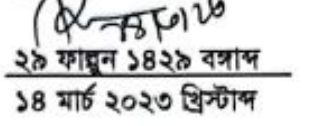 ২৯ ফাল্গুন ১৪২৯ বঙ্গাব্দ
১৪ মার্চ ২০২৩ খ্রিস্টাব্দ